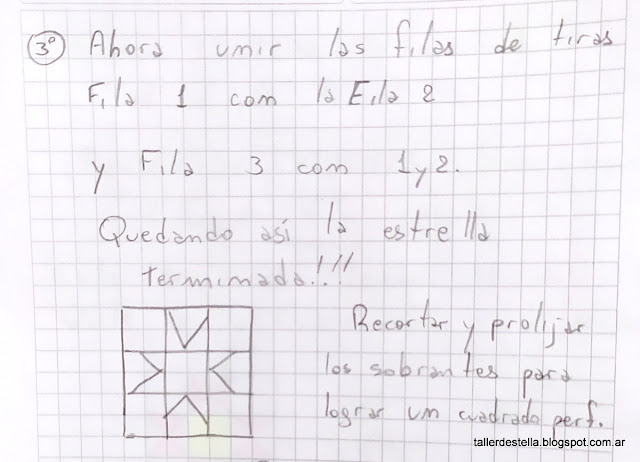 3º Ahora unir las filas de tiras
Fila 1 con la Fila 2
y Fila 3 con 1 y 2.
Quedando así la estrella
terminada!!!
Recortar y prolijar
los sobrantes para
lograr un cuadrado perf.
tallerdestella.blogspot.com.ar